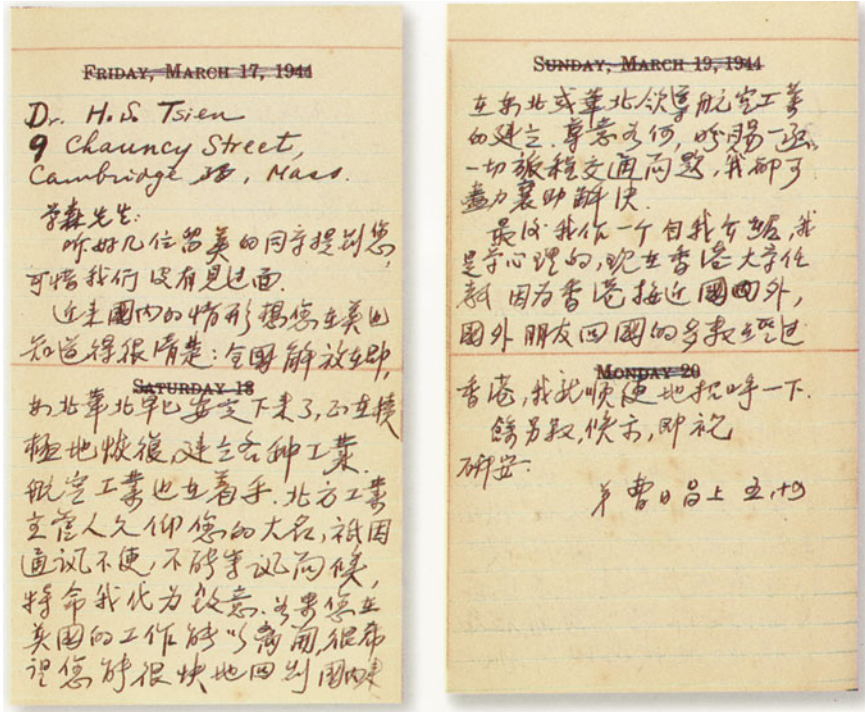 FRIDAY, MARCH 17, 1944
Dr. H.S. Tsien
9 Chauncy Street,
Cambridge, Mass.
学森先生:
听好几位留美的同学提到您,
可惜我们没有見过面.
近来國内的情形想您在美也
知道得很清楚:全國解放在即,
SATURDAY 18
东北華北早已安定下来了,正在積
極地恢復,建立各种工業.
航空工業也在着手.北方工業
主管人久仰您的大名,祇因
通訊不便,不能事訊问候,
特命我代为致意.如果您在
美國的工作能夠离開,很希
望您能很快地回到國内来
SUNDAY, MARCH 19, 1944
在东北或華北领導航空工業
的建立.尊意如何,盼賜一函.
一切旅程交通问题,我都可
盡力襄助解决.
最后我作一个自我介绍,我
是学心理的,现在香港大学任
教 因为香港接近國内外,
國外朋友回國的多数經过
MONDAY 20
香港,我就順便地招呼一下.
餘另叙,候示,即祝
研安.
弟曹日昌上 五,十四